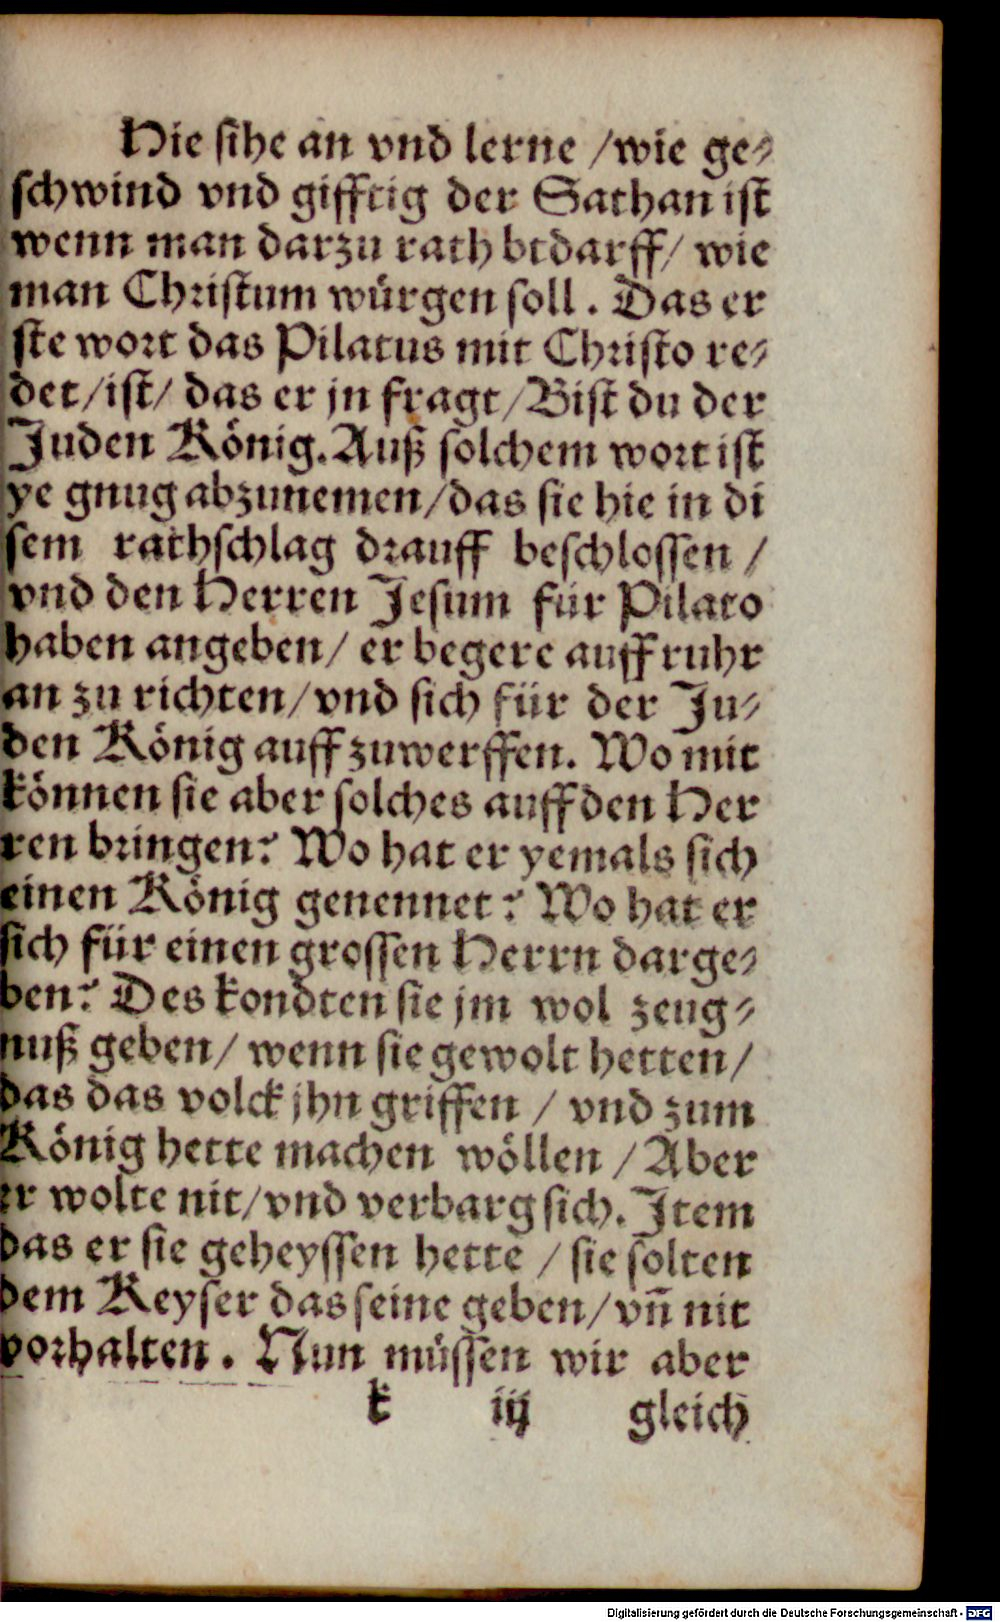 Hie sihe an vnd lerne /wie ge⸗
schwind vnd gifftig der Sathan ist
wenn man darzu rath bedarff/ wie
man Christum würgen soll. Das er
ste wort das Pilatus mit Christo re⸗
det/ist/ das er jn fragt/Bist du der
Juden König. Auß solchem wort ist
ye gnug abzunemen/das sie hie in di
sem rathschlag drauff beschlossen /
vnd den Herren Jesum für Pilato
haben angeben/ er begere auffruhr
an zu richten/vnd sich für der Ju⸗
den König auff zuwerffen. Wo mit
können sie aber solches auff den Her
ren bringen? Wo hat er yemals sich
einen König genennet? Wo hat er
sich für einen grossen Herrn darge⸗
ben? Des kondten sie jm wol zeug⸗
nuß geben/ wenn sie gewolt hetten/
das das volck jhn griffen / vnd zum
König hette machen wöllen /Aber
er wolte nit/vnd verbarg sich. Item
das er sie geheyssen hette / sie solten
dem Keyser das seine geben/vñ nit
vorhalten. Nun müssen wir aber
k iij gleich
Digitalisierung gefördert durch die Deutsche Forschungsgemeinschaft - DFG